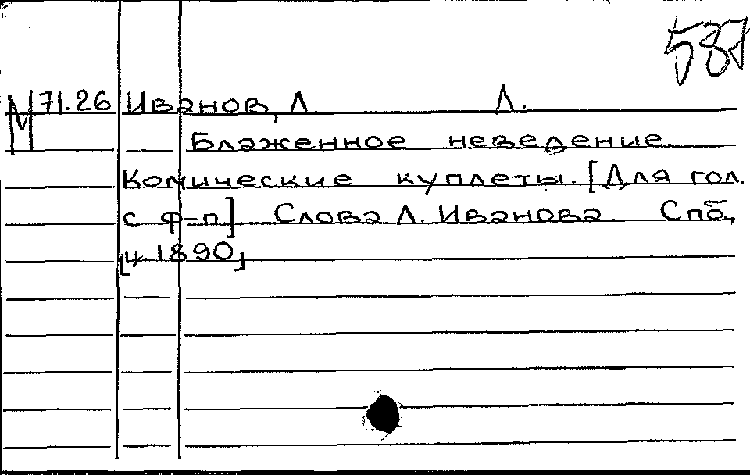 587
М 71.26 Иванов, Л Л.
Блаженное неведение
Комические куплеты. [Для гол.
с ф-п] Слова Л. Иванова. Спб,
[ц 1890]